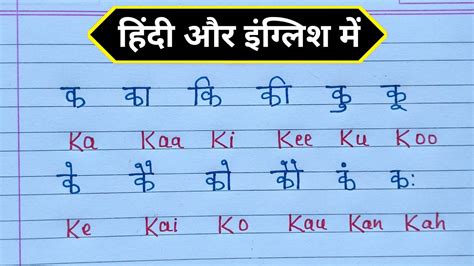 हिंदी और इंग्लिश में
क का कि की कु कू
Ka Kaa Ki Kee Ku Koo
के कै को कौ कं कः
Ke Kai Ko Kau Kan Kah